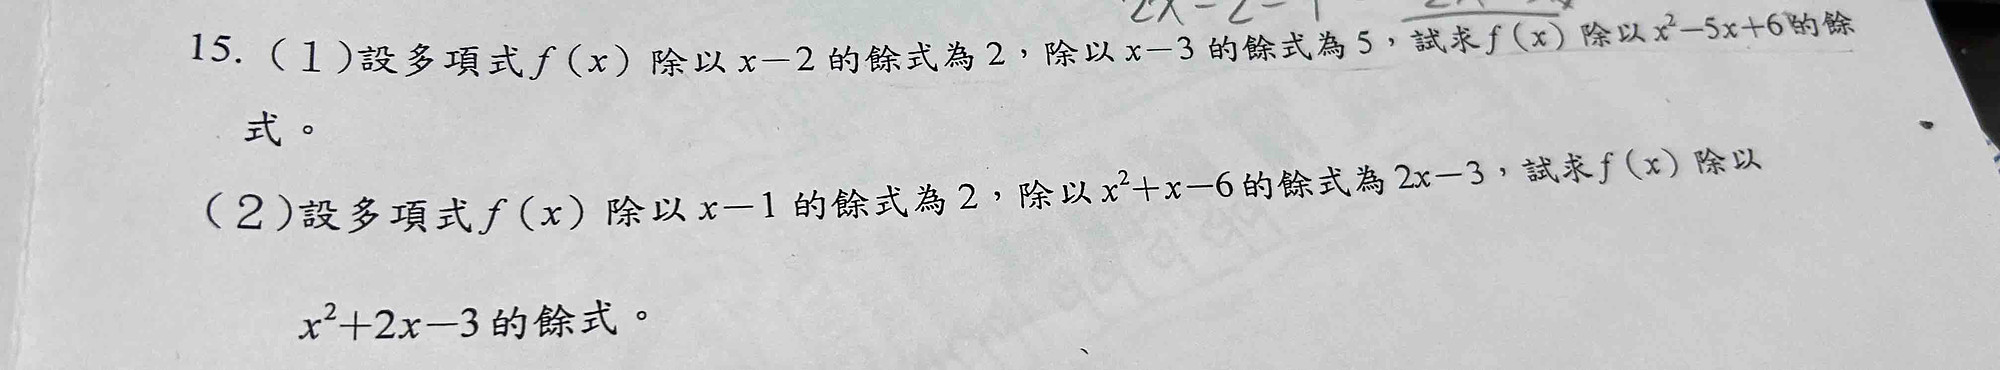 2x-2-1
15. (1)設多項式f(x)除以x-2的餘式為2,除以x-3的餘式為5,試求f(x)除以x²-5x+6的餘
式。
(2)設多項式f(x)除以x-1的餘式為2,除以x²+x-6的餘式為2x-3,試求f(x)除以
x²+2x-3的餘式。